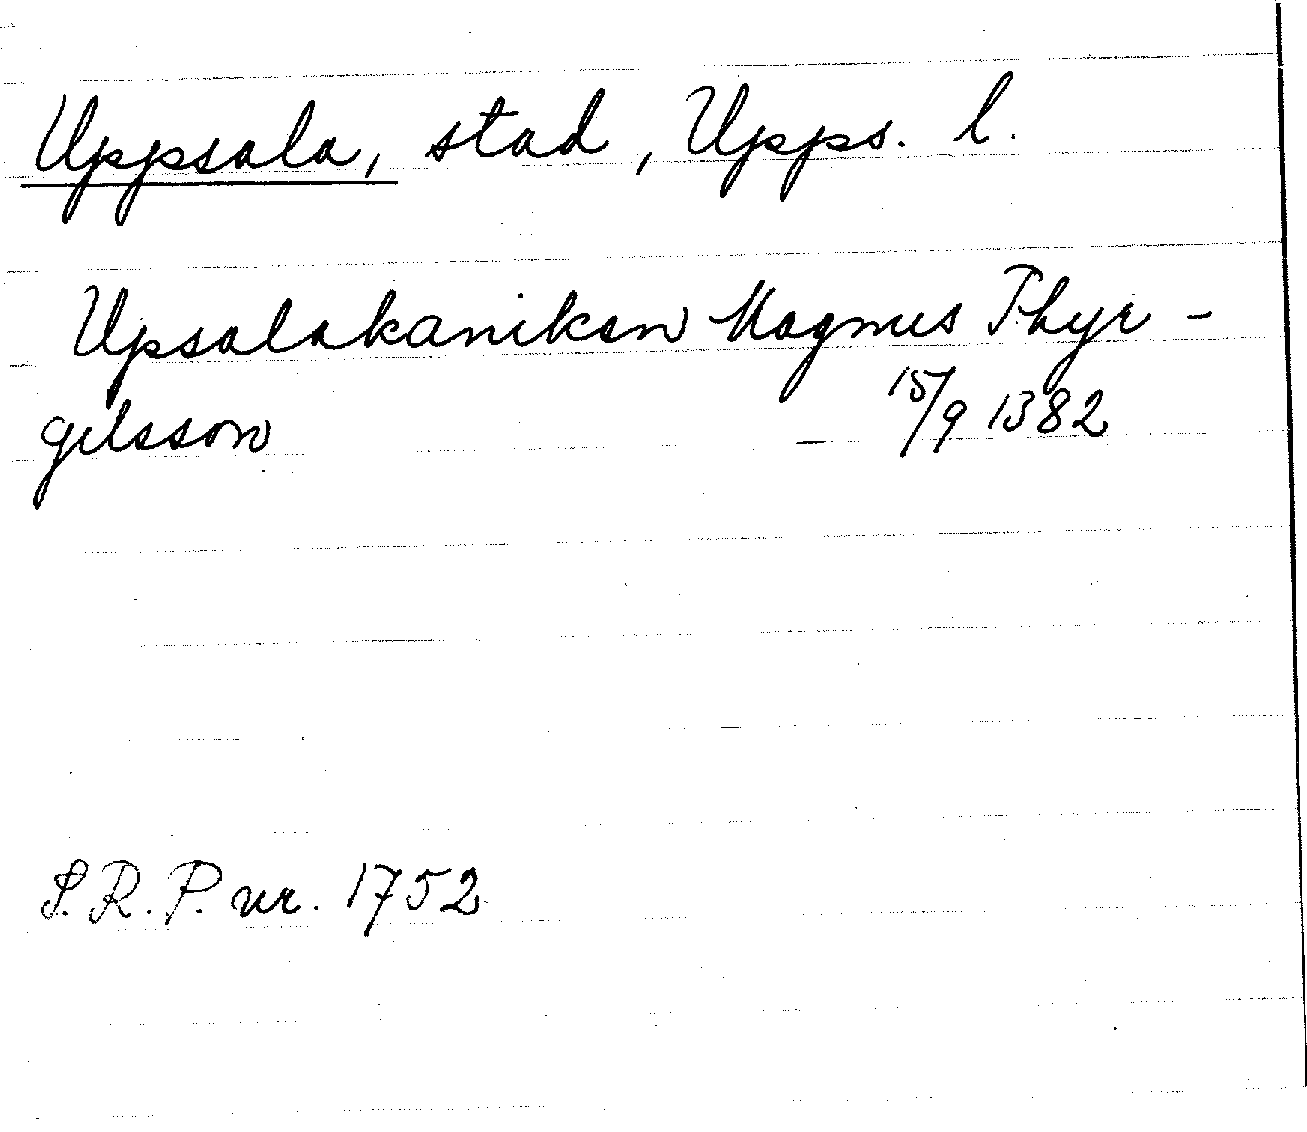 Uppsala, stad, Upps. l.
Upsalakaniken Magnus Thyr-
gilsson 15/9 1382
S.R.P. nr. 1752